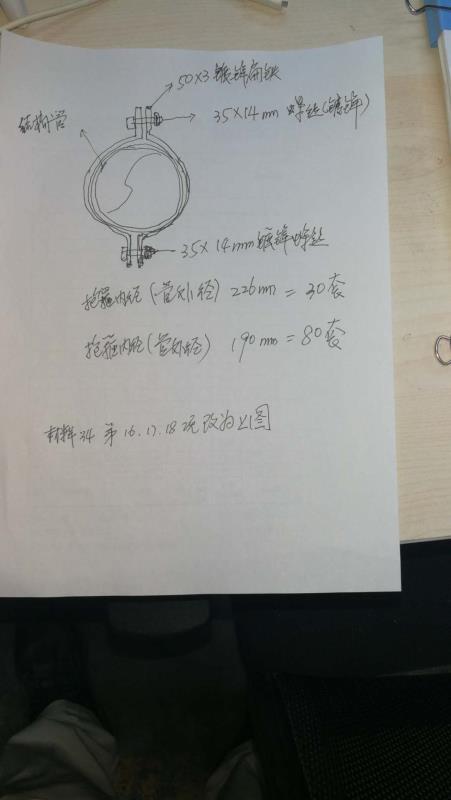 50×3镀锌扁铁
35×14mm 螺丝(镀锌)
35×14mm镀锌螺丝
抱箍内径(管外径) 226mm = 30套
抱箍内径(管外径) 190mm = 80套
材料34 第16.17.18项改为上图